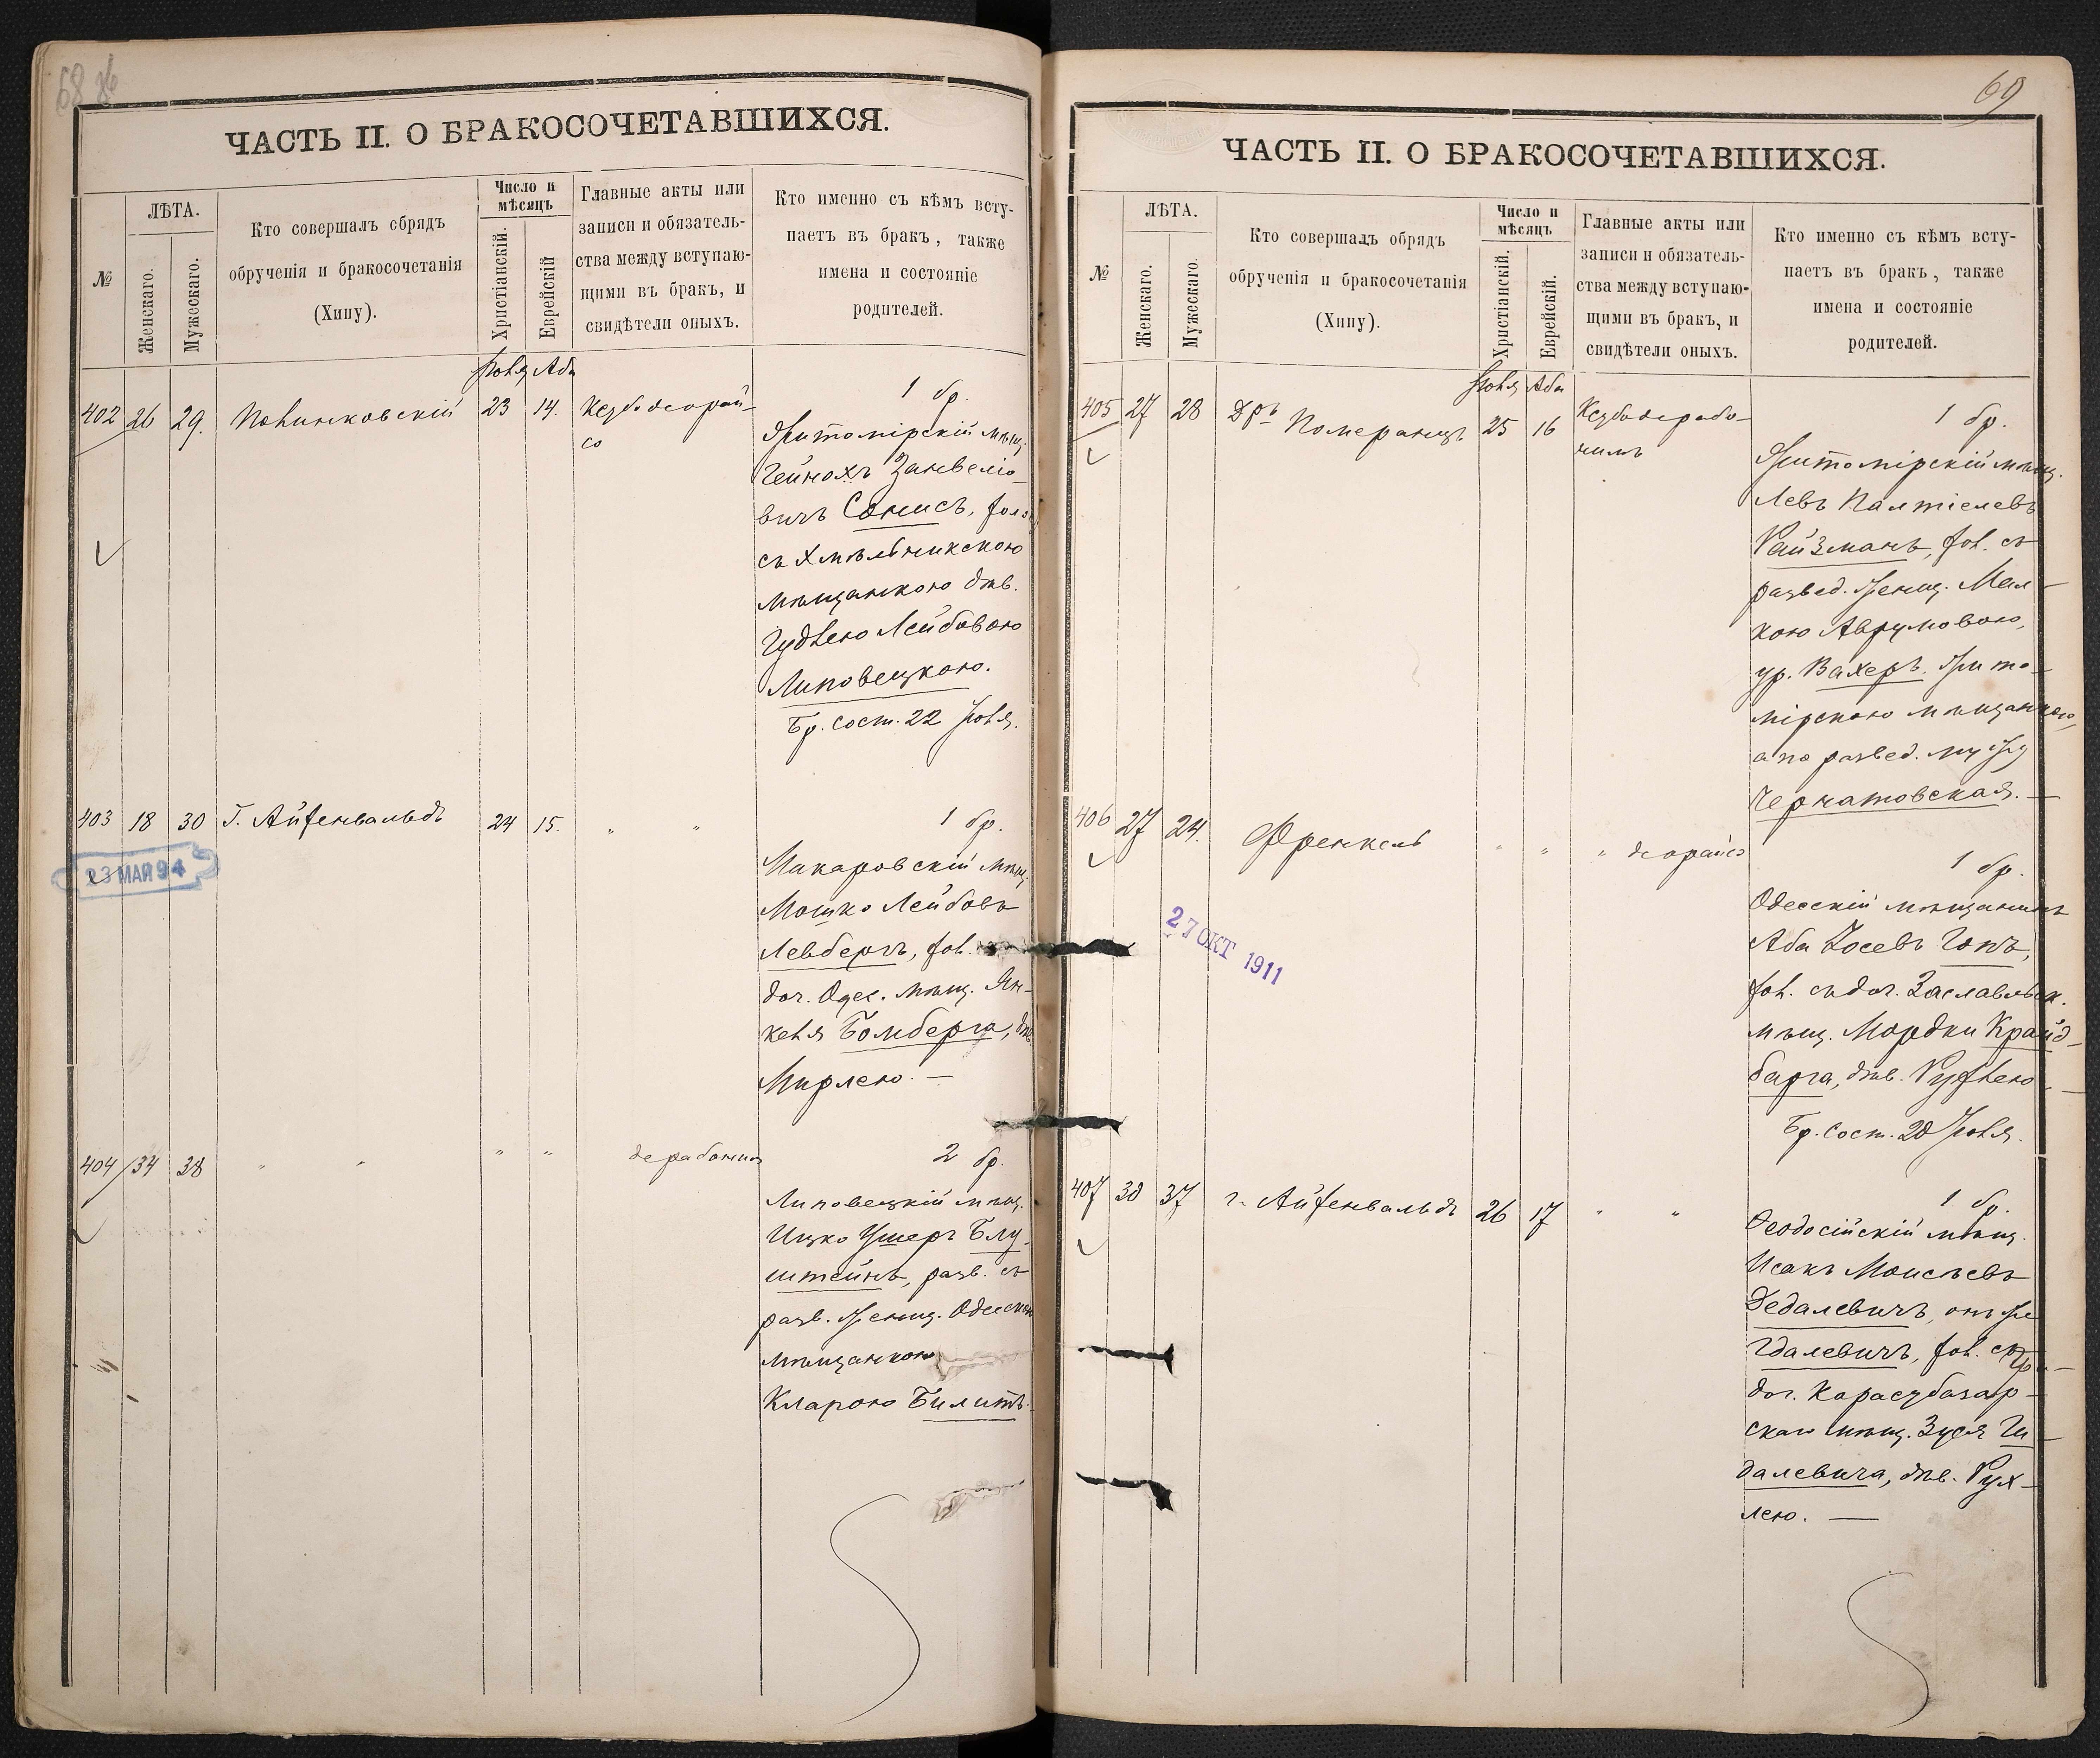 68 об
ЧАСТЬ II. О БРАКОСОЧЕТАВШИХСЯ.
№
ЛѢТА.
Женскаго.
Мужескаго.
Кто совершалъ обрядъ
обрученія и бракосочетанія
(Хипу).
Число и
мѣсяцъ
Христіанскій.
Еврейскій
Главные акты или
записи и обязатель-
ства между вступаю-
щими въ бракъ, и
свидѣтели оныхъ.
Кто именно съ кѣмъ всту-
паетъ въ бракъ, также
имена и состояніе
родителей.
Іюля Аба
402 26 29. 23 14. Кезубо деорай-
со
1 бр.
Житомірскій мѣщ.
Гейнохъ Занвеліо-
вичъ Сонисъ, хол.
съ Хмѣльникскою
мѣщанкою дѣв.
Гудлею Лейбовою
Липовецкою.
Бр. сост. 22 Іюля.
403 18 30 Г. Айхенвальдъ 24 15. " "
1 бр.
23 МАЙ 94
Макаровскій мѣщ.
Мошко Лейбовъ
Левбергъ, хол.
доч. Одес. мѣщ. Ян-
келя Бомберга, дѣв.
Мирлею. —
404 34 38 " " " " дерабонон
2 бр.
Липовецкій мѣщ.
Ицко Ушеръ Блу-
штейнъ, разв. съ
разв. женщ. Одесскою
мѣщанкою
Кларою Билитъ.
69
ЧАСТЬ II. О БРАКОСОЧЕТАВШИХСЯ.
№
ЛѢТА.
Женскаго.
Мужескаго.
Кто совершалъ обрядъ
обрученія и бракосочетанія
(Хипу).
Число и
мѣсяцъ
Христіанскій.
Еврейскій.
Главные акты или
записи и обязатель-
ства между вступаю-
щими въ бракъ, и
свидѣтели оныхъ.
Кто именно съ кѣмъ всту-
паетъ въ бракъ, также
имена и состояніе
родителей.
Іюля Аба
405 27 28 Дръ Померанцъ 25 16 Кезубо дерабо-
нимъ
1 бр.
Житомірскій мѣщ.
Левъ Палтіелевъ
Райзманъ, хол. съ
развед. женщ. Мал-
кою Аврумовою,
ур. Вахеръ. Жито-
мірскою мѣщанкою,
а по развед. мужу
Чернатовская. —
406 27 24. Френкель " " " деорайсо
1 бр.
27 ОКТ 1911
Одесскій мѣщанинъ
Аба Іосевъ Гопъ,
хол. съ доч. Заславльск.
мѣщ. Мордки Крайд-
барга, дѣв. Рухлею —
Бр. сост. 20 Іюля.
407 30 37 г. Айхенвальдъ 26 17 " "
1 бр.
Феодосійскій мѣщ.
Исакъ Моисѣевъ
Дедалевичъ, онъ же
Гдалевичъ, хол. съ
доч. Карасубазар-
скаго мѣщ. Зуся Ги-
далевича, дѣв. Рух-
лею. —